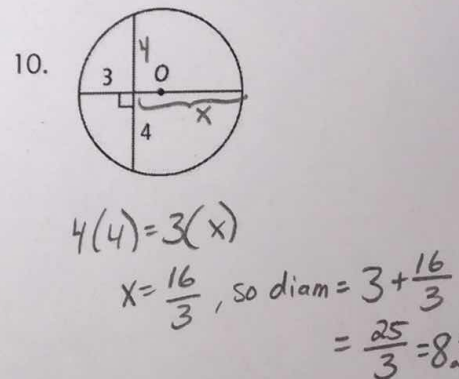 10.
4
3 O
x
4
4(4)=3(x)
x=16/3, so diam = 3+16/3
= 25/3 =8.